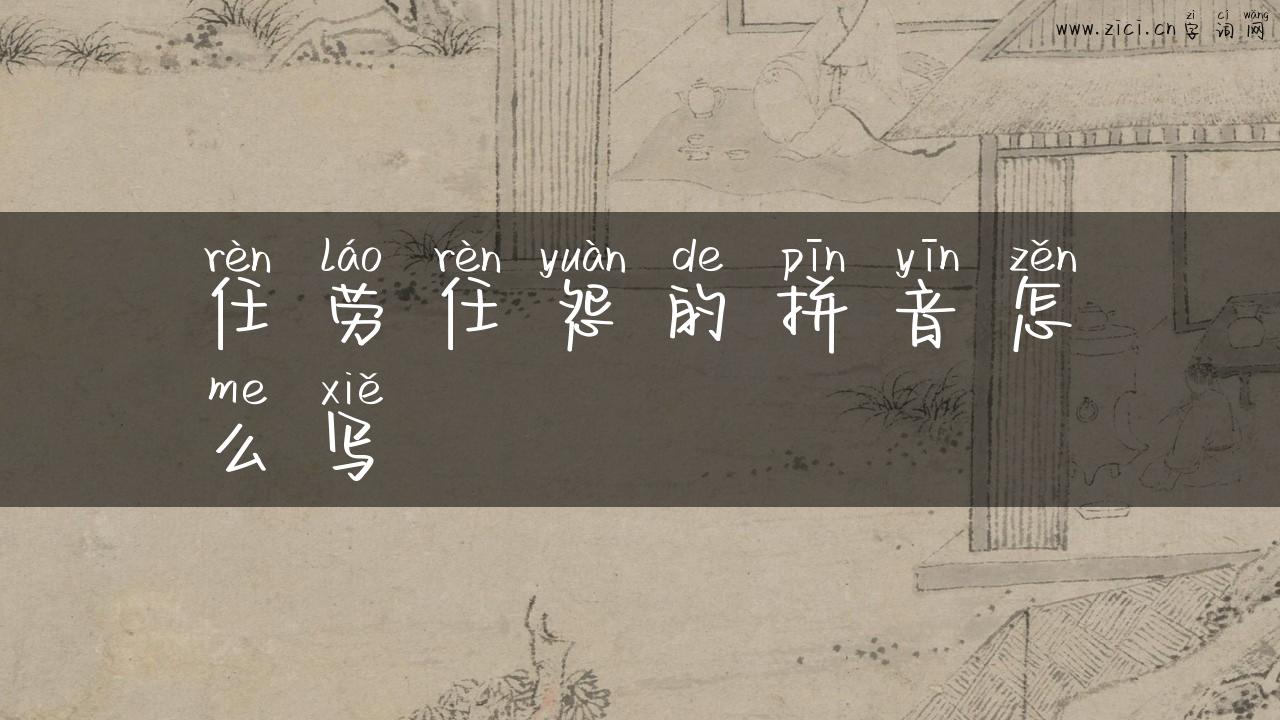 zì cí wǎng
www.zici.cn 字 词 网
rèn láo rèn yuàn de pīn yīn zěn
任 劳 任 怨 的 拼 音 怎
me xiě
么 写